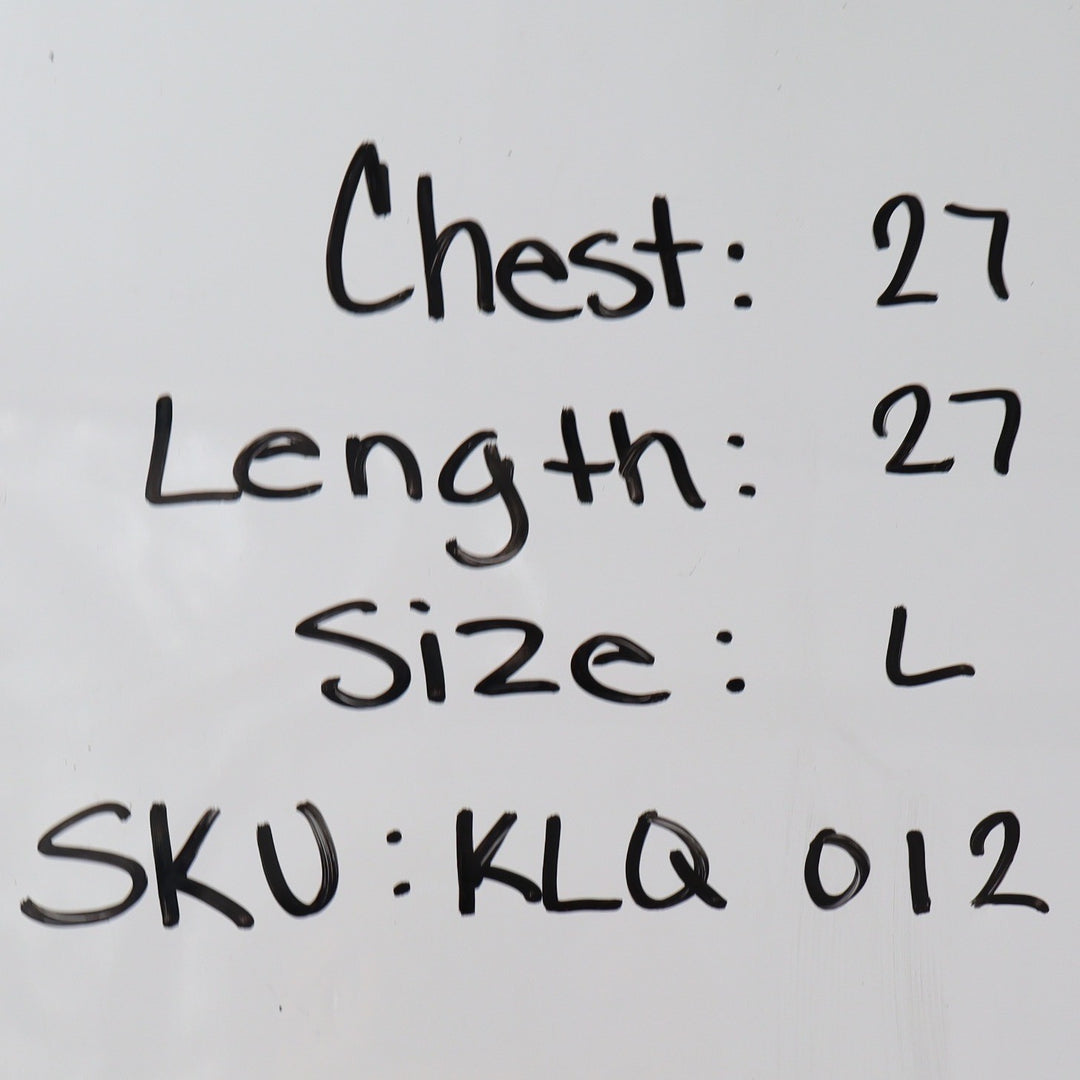 Chest: 27
Length: 27
Size: L
SKU: KLQ 012